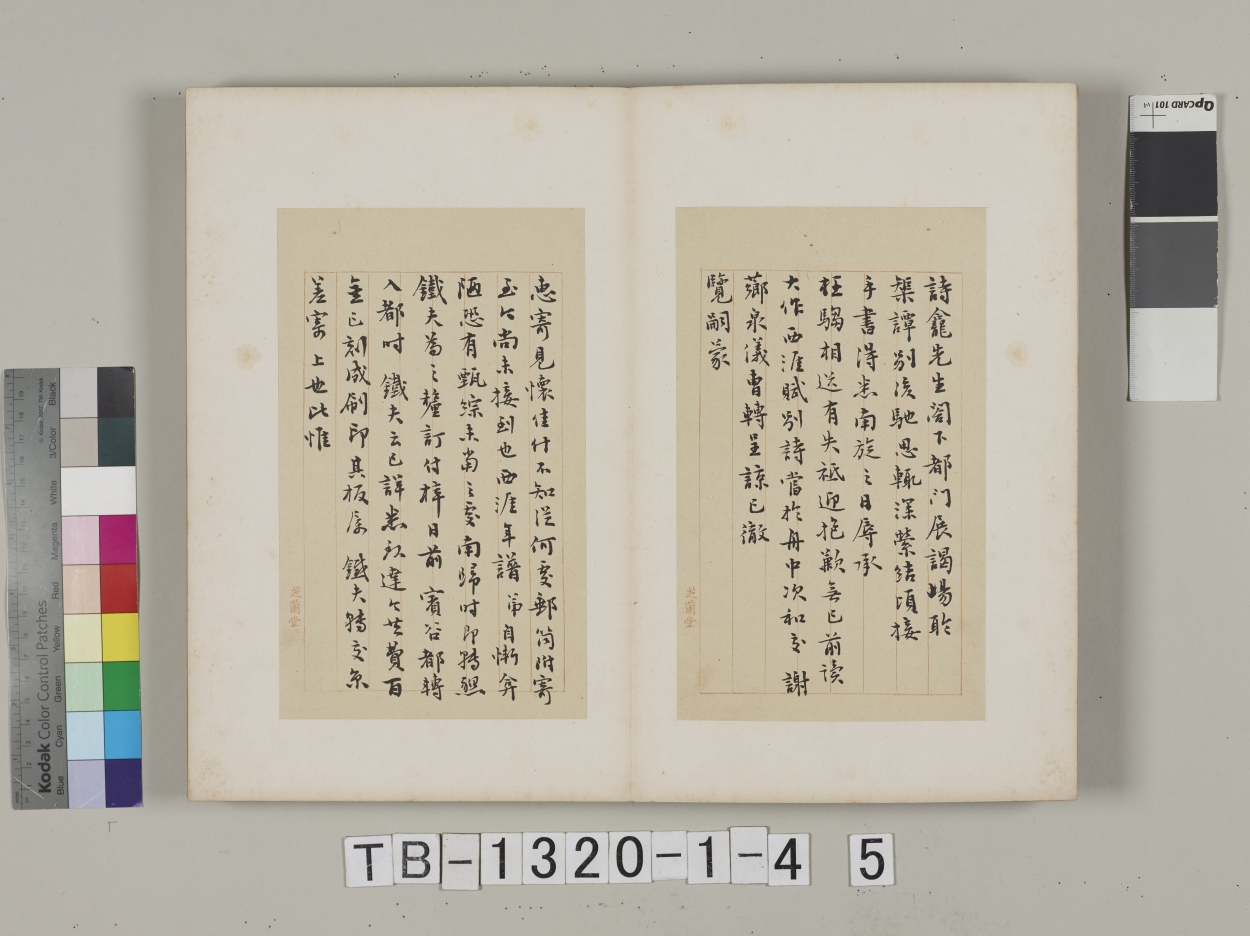 詩龕先生閣下都門展謁暢聆
榘譚別後馳思輒深縈結頃接
手書得悉南旋之日辱承
枉騶相送有失祗迎抱歉無已前讀
大作西涯賦別詩當於舟中次和交謝
薌泉儀曹轉呈諒已徹
覽嗣蒙
芝蘭堂
惠寄見懷佳什不知從何處郵筒附寄
至今尚未接到也西涯年譜弟自慚弇
陋恐有甄綜未當之處南歸時即轉懇
鐵夫為之釐訂付梓日前賓谷都轉
入都時鐵夫云已詳悉改違今共費百
金已刻成刷印其板片鐵夫轉交京
差寄上也此惟
芝蘭堂
TB-1320-1-4 5
QpCARD 101
Kodak Color Control Patches
Blue Cyan Green Yellow Red Magenta White 3/Color Black